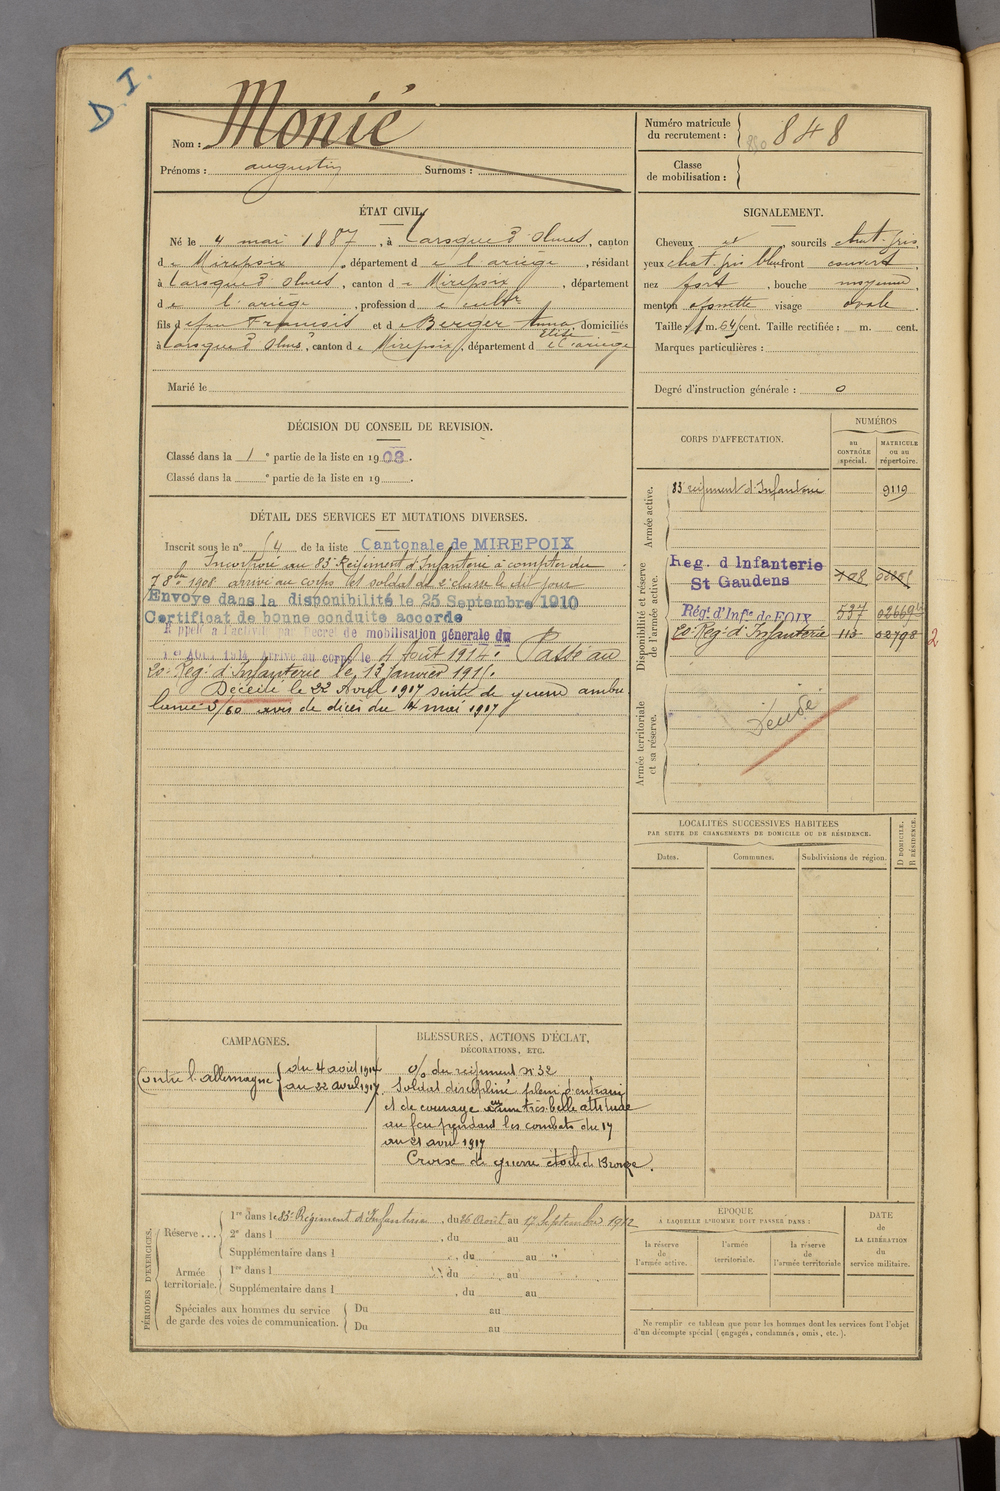 D. I.
Nom : Monié
Prénoms : augustin Surnoms :
Numéro matricule du recrutement : 850 848
Classe de mobilisation :
ÉTAT CIVIL.
Né le 4 mai 1887, à Laroque d'Olmes, canton
de Mirepoix, département de l'ariège, résidant
à Laroque d'Olmes, canton de Mirepoix, département
de l'ariège, profession de cultr
fils de feu Francois et de Berger Anna Elise, domiciliés
à Laroque d'Olmes, canton de Mirepoix, département de l'ariège
Marié le
SIGNALEMENT.
Cheveux et, sourcils chat. gris,
yeux chat. gris bleu front couvert,
nez fort, bouche moyenne,
menton visage ovale.
Taille : 1 m. 64 cent. Taille rectifiée : m. cent.
Marques particulières :
Degré d'instruction générale : 0
DÉCISION DU CONSEIL DE REVISION.
Classé dans la 1e partie de la liste en 1908.
Classé dans la e partie de la liste en 19 .
DÉTAIL DES SERVICES ET MUTATIONS DIVERSES.
Inscrit sous le n° 54 de la liste Cantonale de MIREPOIX
Incorporé au 83e Régiment d'Infanterie à compter du
7 8bre 1908 arrivé au corps et soldat de 2e classe le dit jour
Envoyé dans la disponibilité le 25 Septembre 1910
Certificat de bonne conduite accordé
Rappelé à l'activité par Décret de mobilisation générale du
1er Août 1914. Arrivé au corps le 4 Août 1914. Passé au
20e Rég. d'Infanterie le 13 Janvier 191
Décédé le 22 Avril 1917 suite de guerre ambu
lance 5/60 avis de décès du 14 mai 1917
CORPS D'AFFECTATION.
NUMÉROS
au CONTRÔLE spécial.
MATRICULE ou au répertoire.
Armée active.
83e régiment d'Infanterie 9119
Disponibilité et réserve de l'armée active.
Reg. d Infanterie
St Gaudens 108
Régt d'Infie de FOIX 537 02669
20e Reg. d'Infanterie 113 02798 2
Armée territoriale et sa réserve.
LOCALITÉS SUCCESSIVES HABITÉES
PAR SUITE DE CHANGEMENTS DE DOMICILE OU DE RÉSIDENCE.
Dates. Communes. Subdivisions de région.
D DOMICILE.
R RÉSIDENCE.
CAMPAGNES.
Contre l'allemagne
du 4 août 1914
au 22 avril 1917
BLESSURES, ACTIONS D'ÉCLAT,
DÉCORATIONS, ETC.
o/ du régiment n° 32
Soldat discipliné plein d'entrain
et de courage eu une très belle attitude
au feu pendant les combats du 17
au 21 avril 1917
Croix de guerre étoile de Bronze.
PÉRIODES D'EXERCICES.
Réserve ...
1re dans le 83e Régiment d'Infanterie, du 26 Août au 17 Septembre 1912
2e dans l , du au
Supplémentaire dans l , du au
Armée territoriale.
1re dans l , du au
Supplémentaire dans l , du au
Spéciales aux hommes du service
de garde des voies de communication.
Du au
Du au
ÉPOQUE
A LAQUELLE L'HOMME DOIT PASSER DANS :
la réserve de l'armée active.
l'armée territoriale.
la réserve de l'armée territoriale
DATE de LA LIBÉRATION du service militaire.
Ne remplir ce tableau que pour les hommes dont les services font l'objet
d'un décompte spécial (engagés, condamnés, omis, etc.).